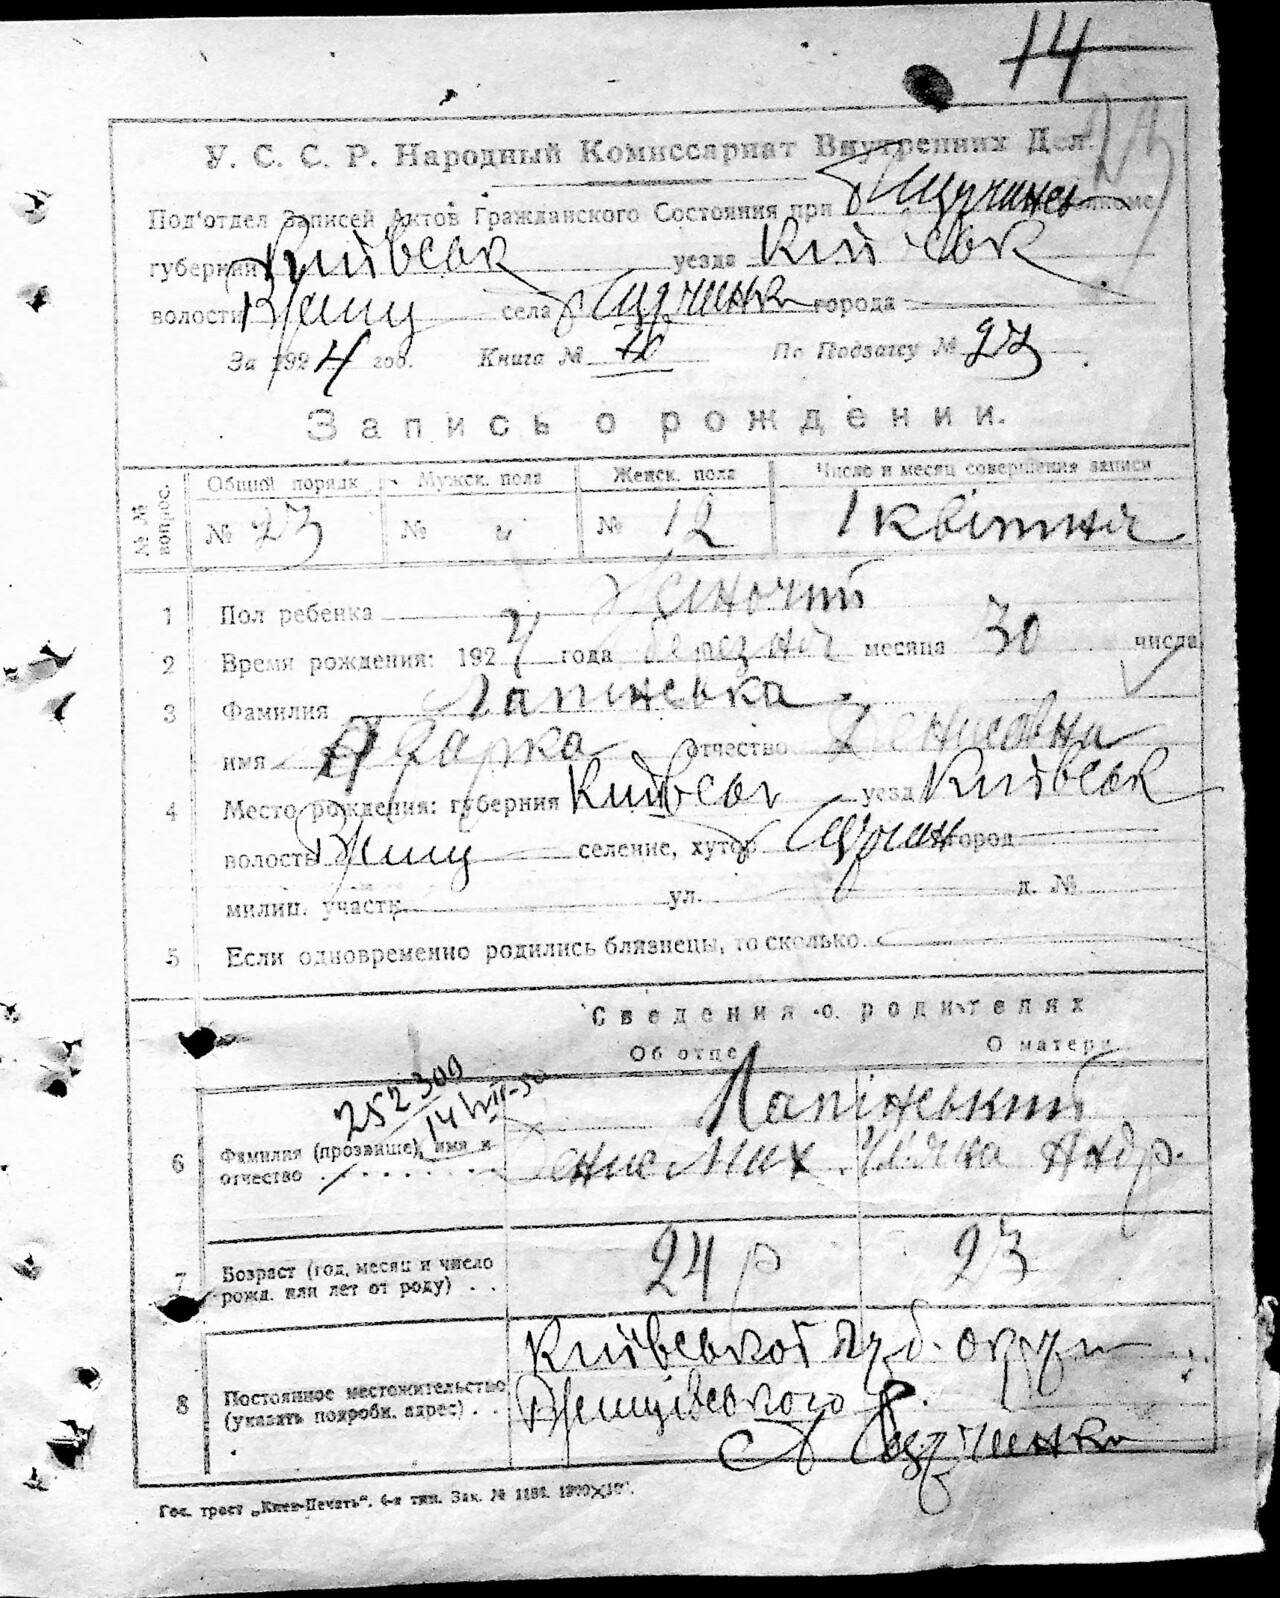 14
У. С. С. Р. Народный Комиссариат Внутренних Дел.
Под'отдел Записей Актов Гражданского Состояния при
губернии Київськ уезда Київськ
волости Ржищ села города
За 1924 год. Книга № По Подзагсу № 23
Запись о рождении.
№№ вопрос. Общий порядк. Мужск. пола Женск. пола Число и месяц совершения записи
№ 23 № № 12 1 квітня
1 Пол ребенка Жіночий
2 Время рождения: 1924 года березня месяца 30 числа
3 Фамилия Лапінська
имя Одарка отчество Денисовна
4 Место рождения: губерния Київськ уезд Київськ
волость Ржищ селение, хутор город
милиц. участк. ул. д. №
5 Если одновременно родились близнецы, то сколько
Сведения о родителях
Об отце О матери
252300
Лапінський
6 Фамилия (прозвище), имя и
отчество Денис Мих Андр.
7 Возраст (год, месяц и число
рожд. или лет от роду) 24 р 23
Київської губ. округи
8 Постоянное местожительство
(указать подробн. адрес) Ржищівського р.
с.
Гос. трест „Киев-Печать". 4-я тип. Зак. №